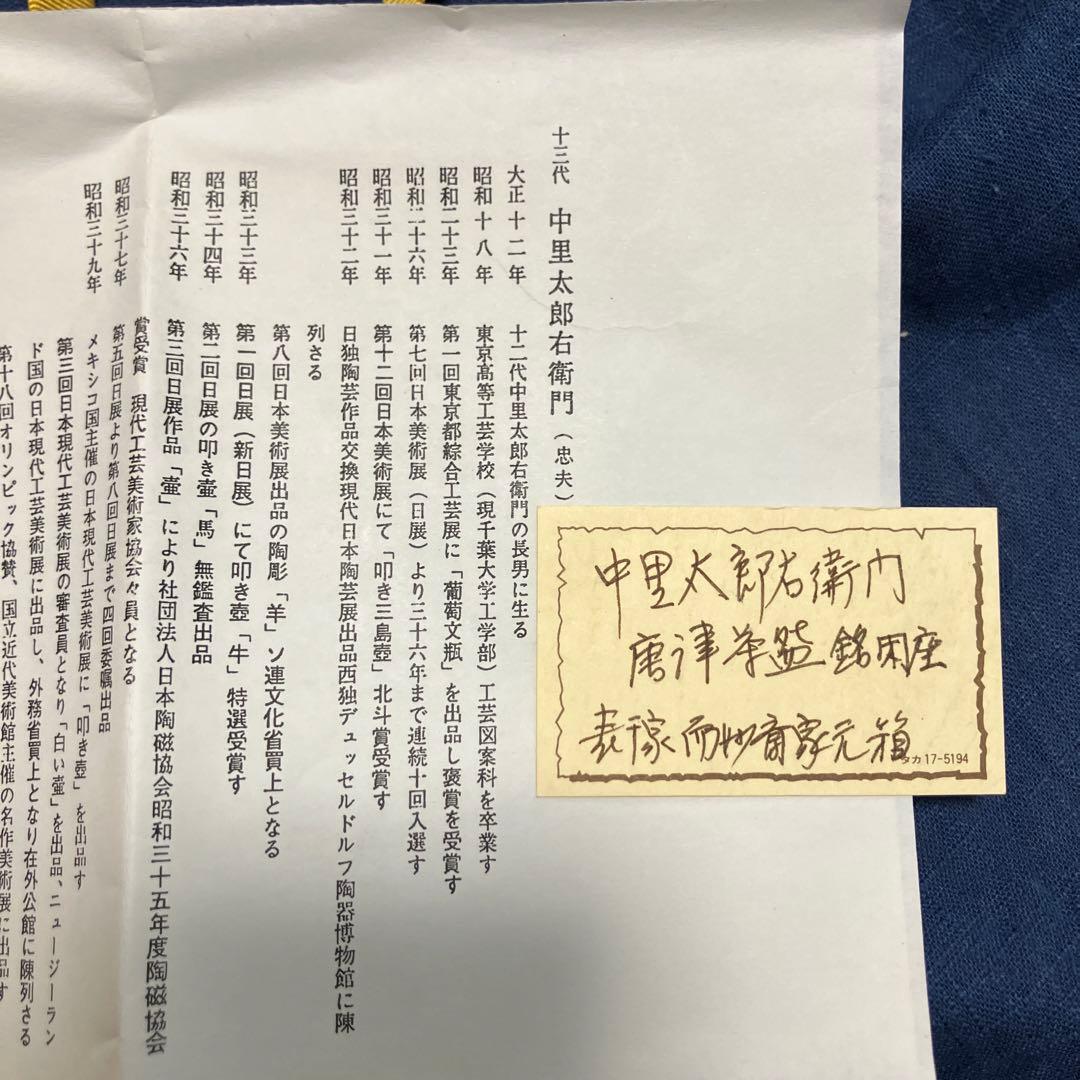 十三代 中里太郎右衛門（忠夫）
大正十二年 十二代中里太郎右衛門の長男に生る
昭和十八年 東京高等工芸学校（現千葉大学工学部）工芸図案科を卒業す
昭和二十三年 第一回東京都綜合工芸展に「葡萄文瓶」を出品し褒賞を受賞す
昭和二十六年 第七回日本美術展（日展）より三十六年まで連続十回入選す
昭和三十一年 第十二回日本美術展にて「叩き三島壺」北斗賞受賞す
昭和三十二年 日独陶芸作品交換現代日本陶芸展出品西独デュッセルドルフ陶器博物館に陳
列さる
第八回日本美術展出品の陶彫「羊」ソ連文化省買上となる
昭和三十三年 第一回日展（新日展）にて叩き壺「牛」特選受賞す
昭和三十四年 第二回日展の叩き壷「馬」無鑑査出品
昭和三十六年 第三回日展作品「壷」により社団法人日本陶磁協会昭和三十五年度陶磁協会
賞受賞 現代工芸美術家協会々員となる
昭和三十七年 第五回日展より第八回日展まで四回委嘱出品
メキシコ国主催の日本現代工芸美術展に「叩き壺」を出品す
昭和三十九年 第三回日本現代工芸美術展の審査員となり「白い壷」を出品、ニュージーラン
ド国の日本現代工芸美術展に出品し、外務省買上となり在外公館に陳列さる
第十八回オリンピック協賛、国立近代美術館主催の名作美術展に出品す
中里太郎右衛門
唐津茶盌 銘閑座
表千家而妙斎家元箱
タカ 17-5194